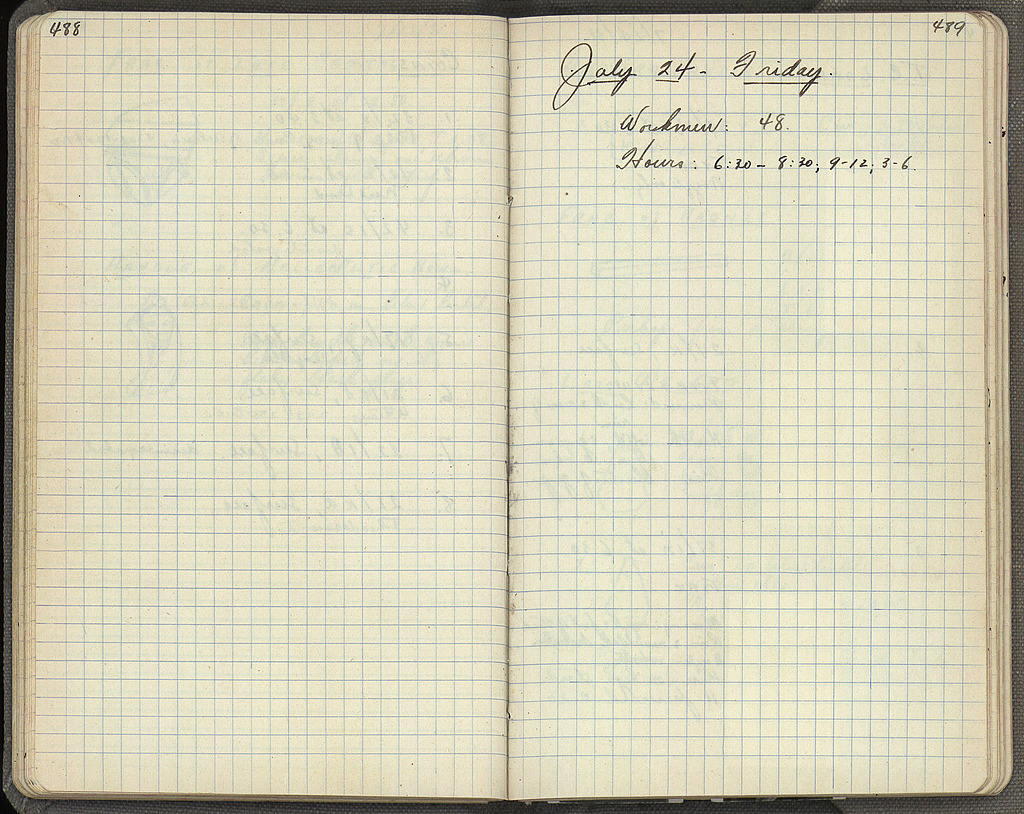 488
489
July 24 - Friday.
Workmen: 48.
Hours: 6:30 - 8:30; 9-12; 3-6.